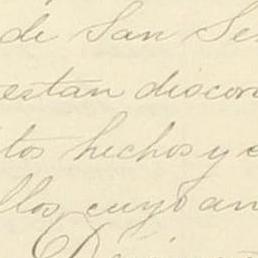 de San Se
estan discor
tos hechos y e
llos cuyo an